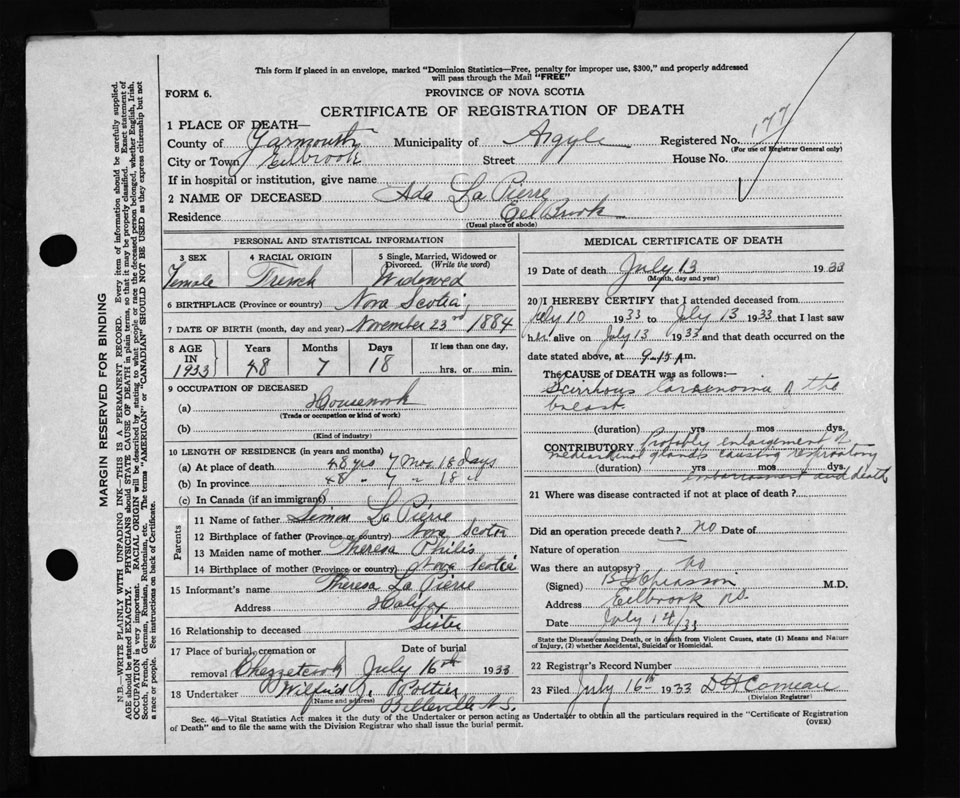 This form if placed in an envelope, marked "Dominion Statistics—Free, penalty for improper use, $300," and properly addressed
will pass through the Mail "FREE"
FORM 6.
PROVINCE OF NOVA SCOTIA
CERTIFICATE OF REGISTRATION OF DEATH
177
1 PLACE OF DEATH—
County of Yarmouth Municipality of Argyle Registered No.
(For use of Registrar General only)
City or Town Eelbrook Street House No.
If in hospital or institution, give name
2 NAME OF DECEASED Ada La Pierre
Residence Eel Brook
(Usual place of abode)
MARGIN RESERVED FOR BINDING
N.B.—WRITE PLAINLY WITH UNFADING INK—THIS IS A PERMANENT RECORD. Every item of information should be carefully supplied.
AGE should be stated EXACTLY. PHYSICIANS should STATE CAUSE OF DEATH in plain terms, so that it may be properly classified. Exact statement of
OCCUPATION is very important. RACIAL ORIGIN will be described by stating to what people or race the deceased person belonged, whether English, Irish,
Scotch, French, German, Russian, Ruthenian, etc. The terms "AMERICAN" or "CANADIAN" SHOULD NOT BE USED as they express citizenship but not
a race or people. See instructions on back of Certificate.
PERSONAL AND STATISTICAL INFORMATION
3 SEX 4 RACIAL ORIGIN 5 Single, Married, Widowed or
Divorced. (Write the word)
Female French Widowed
6 BIRTHPLACE (Province or country) Nova Scotia
7 DATE OF BIRTH (month, day and year) November 23rd 1884
8 AGE IN Years Months Days If less than one day,
1933 48 7 18 hrs. or min.
9 OCCUPATION OF DECEASED
(a) Housework
(Trade or occupation or kind of work)
(b)
(Kind of industry)
10 LENGTH OF RESIDENCE (in years and months)
(a) At place of death 48 yrs 7 Mos 18 days
(b) In province 48 " 7 " 18 "
(c) In Canada (if an immigrant)
Parents
11 Name of father Simon La Pierre
12 Birthplace of father (Province or country) Nova Scotia
13 Maiden name of mother Theresa Philis
14 Birthplace of mother (Province or country) Nova Scotia
15 Informant's name Theresa La Pierre
Address Halifax
16 Relationship to deceased Sister
17 Place of burial, cremation or Date of burial
removal Chezzetcook July 16th 1933
18 Undertaker Wilfrid J. Pottier
(Name and address) Belleville N.S.
MEDICAL CERTIFICATE OF DEATH
19 Date of death July 13 1933
(Month, day and year)
20 I HEREBY CERTIFY that I attended deceased from
July 10 1933 to July 13 1933 that I last saw
her alive on July 13 1933 and that death occurred on the
date stated above, at 9-15 A m.
The CAUSE of DEATH was as follows:
Scirrhous Carcenoma of the
breast.
(duration) yrs mos dys.
CONTRIBUTORY Probably enlargement of
glands causing respiratory
(duration) yrs mos dys.
embarrassment and death
21 Where was disease contracted if not at place of death?
Did an operation precede death? no Date of
Nature of operation
Was there an autopsy? no
(Signed) Chiasson M.D.
Address Eelbrook N.S.
Date July 14/33
State the Disease causing Death, or in death from Violent Causes, state (1) Means and Nature
of Injury, (2) whether Accidental, Suicidal or Homicidal.
22 Registrar's Record Number
23 Filed July 16th 1933 D H Comeau
(Division Registrar)
Sec. 46—Vital Statistics Act makes it the duty of the Undertaker or person acting as Undertaker to obtain all the particulars required in the "Certificate of Registration
of Death" and to file the same with the Division Registrar who shall issue the burial permit.
(OVER)